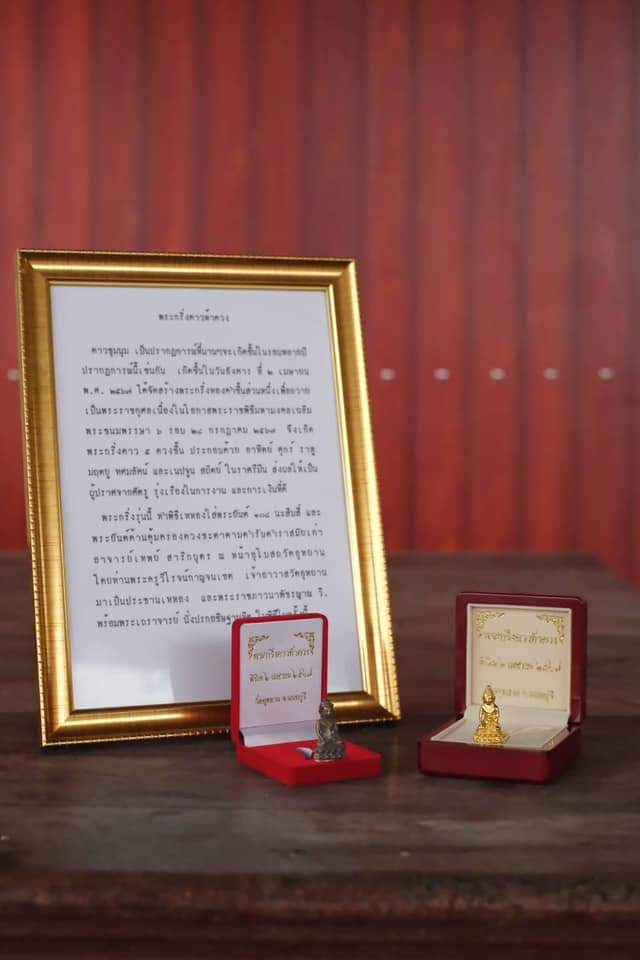 พระกริ่งดาวห้าดวง
ดาวชุมนุม เป็นปรากฏการณ์ที่นานๆจะเกิดขึ้นในรอบหลายปี
ปรากฏการณ์นี้เช่นกัน เกิดขึ้นในวันอังคาร ที่ ๒ เมษายน
พ.ศ. ๒๕๖๗ ได้จัดสร้างพระกริ่งทองคำขึ้นส่วนหนึ่งเพื่อถวาย
เป็นพระราชกุศลเนื่องในโอกาสพระราชพิธีมหามงคลเฉลิม
พระชนมพรรษา ๖ รอบ ๒๘ กรกฎาคม ๒๕๖๗ จึงเกิด
พระกริ่งดาว ๕ ดวงขึ้น ประกอบด้วย อาทิตย์ ศุกร์ ราหู
มฤตยู ทศมลัคน์ และเนปจูน สถิตย์ ในราศรีมีน ส่งผลให้เป็น
ผู้ปราศจากศัตรู รุ่งเรืองในการงาน และการเงินที่ดี
พระกริ่งรุ่นนี้ ทำพิธีเททองใส่พระยันต์ ๑๐๘ นะสิบสี่ และ
พระยันต์ด้านคุ้มครองดวงชะตาตามตำรับตำราสมัยเก่า
อาจารย์เทพย์ สาริกบุตร ณ หน้าอุโบสถวัดอุทยาน
โดยท่านพระครูวิโรจน์กาญจนเขต เจ้าอาวาสวัดอุทยาน
มาเป็นประธานเททอง และพระราชภาวนาพัชรญาณ วิ.
พร้อมพระเถราจารย์ นั่งปรกอธิษฐานจิต
พระกริ่งดาวห้าดวง
พิธี ๒ เมษายน ๒๕๖๗
วัดอุทยาน จ.นนทบุรี
พระกริ่งดาวห้าดวง
พิธี ๒ เมษายน ๒๕๖๗